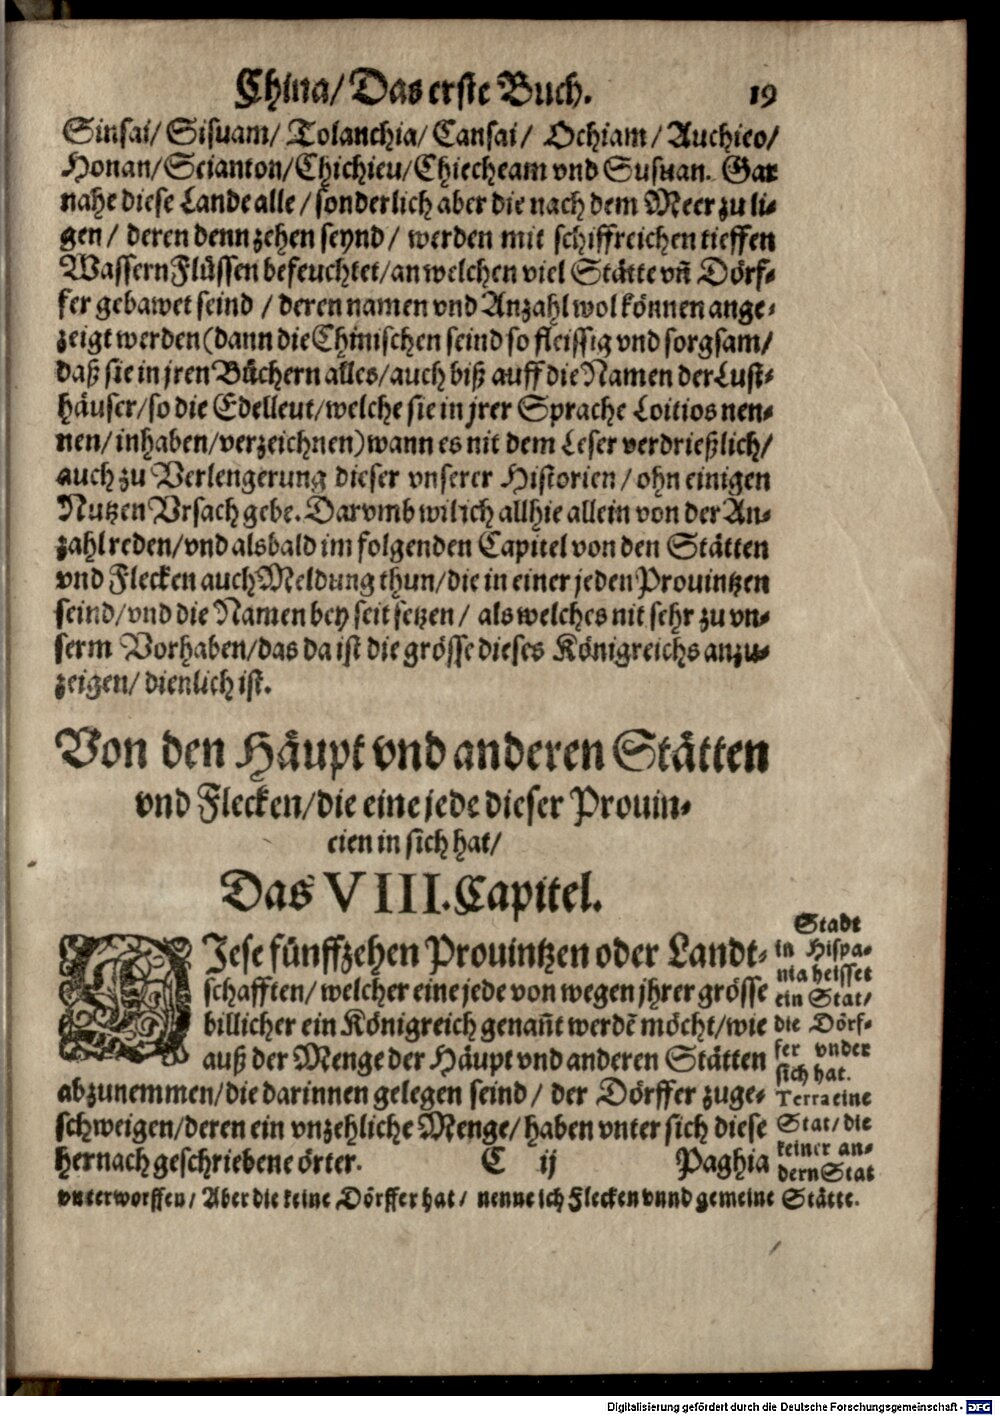 China/ Das erste Buch. 19
Sinsai/ Sisuam/ Tolanchia/ Cansai/ Ochiam/ Auchieo/
Honan/ Scianton/ Chichieu/ Chiecheam vnd Susuan. Gar
nahe diese Lande alle / sonderlich aber die nach dem Meer zu li-
gen / deren denn zehen seynd / werden mit schiffreichen tieffen
Wassern Flüssen befeuchtet/ an welchen viel Stätte vñ Dörf-
fer gebawet seind / deren namen vnd Anzahl wol können ange-
zeigt werden (dann die Chinischen seind so fleissig vnd sorgsam/
daß sie in jren Büchern alles/ auch biß auff die Namen der Lust-
häuser/ so die Edelleut/ welche sie in jrer Sprache Loitios nen-
nen/ inhaben/ verzeichnen) wann es nit dem Leser verdrießlich/
auch zu Verlengerung dieser vnserer Historien / ohn einigen
Nutzen Vrsach gebe. Darvmb wil ich allhie allein von der An-
zahl reden/ vnd alsbald im folgenden Capitel von den Stätten
vnd Flecken auch Meldung thun/ die in einer jeden Prouintzen
seind/ vnd die Namen bey seit setzen / als welches nit sehr zu vn-
serm Vorhaben/ das da ist die grösse dieses Königreichs anzu-
zeigen/ dienlich ist.
Von den Häupt vnd anderen Stätten
vnd Flecken/ die eine jede dieser Prouin-
cien in sich hat/
Das VIII. Capitel.
DJese fünffzehen Prouintzen oder Landt-
schafften/ welcher eine jede von wegen jhrer grösse
billicher ein Königreich genañt werdẽ möcht/ wie
auß der Menge der Häupt vnd anderen Stätten
abzunemmen/ die darinnen gelegen seind / der Dörffer zuge-
schweigen/ deren ein vnzehliche Menge/ haben vnter sich diese
hernach geschriebene örter. C ij Paghia
Stadt
in Hispa-
nia heisset
ein Stat/
die Dörf-
fer vnder
sich hat.
Terra eine
Stat/ die
keiner an-
dern Stat
vnterworffen/ Aber die keine Dörffer hat / nenne ich Flecken vnnd gemeine Stätte.
Digitalisierung gefördert durch die Deutsche Forschungsgemeinschaft - DFG